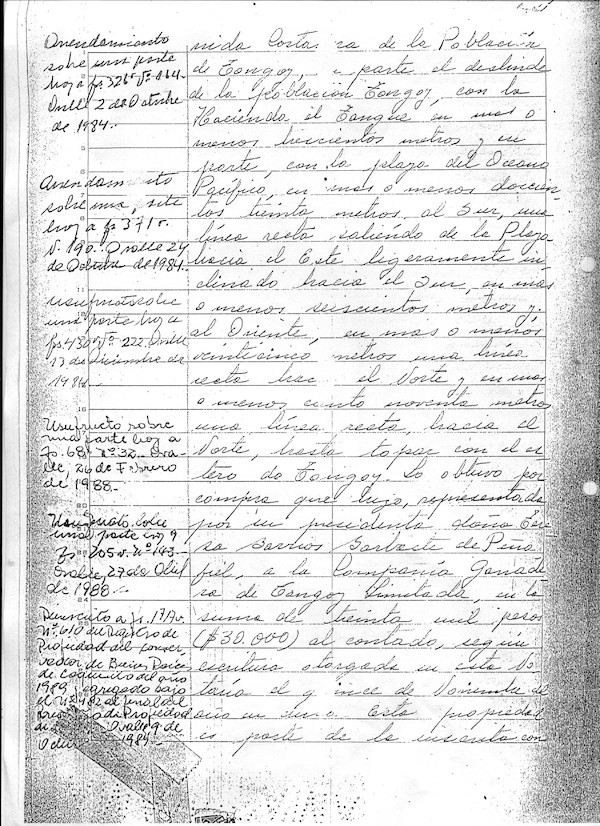 Arrendamiento
sobre una parte
hoy a fs. 326 v Nº 164.
Ovalle 2 de Octubre
de 1984.-
Arrendamiento
sobre una parte
hoy a fs 371 v.
N. 190. Ovalle 24
de Octubre de 1984.-
usufructo sobre
una parte hoy a
fs. 430 v Nº 222. Ovalle
13 de Diciembre de
Usufructo sobre
una parte hoy a
fs. 68 Nº 32. Ova-
lle, 26 de Febrero
de 1988.-
Usufructo sobre
una parte hoy a
fs 205 v. nº 143.-
Ovalle, 27 de Abril
de 1988.-
a fs. 
Nº 610 del Registro de
Propiedad del Conser-
vador de Bienes Raíces
de Coquimbo del año
1989 agregado bajo
el Nº 482 al final del
de Propiedad
Ovalle 9 de
1989.-
nida Costanera de la Población
de Tongoy, parte el deslinde
de la población Tongoy, con la
Hacienda el Tangue en mas o
menos trescientos metros y en
parte, con la playa del Oceano
Pacífico, en mas o menos doscien-
tos treinta metros. al Sur, una
línea recta saliendo de la Playa
hacia el Este ligeramente in
clinado hacia el Sur, en mas
o menos seiscientos metros y.
al Oriente, en mas o menos
veinticinco metros una línea
recta hac el Norte y en mas
o menos ciento noventa metros
una línea recta, hacia el
Norte, hasta topar con el es
tero de Tongoy. Lo obtuvo por
compra que hizo, representada
por su presidenta doña
sa Barrios de Peña
fiel, a la Compañía Ganade
ra de Tongoy Limitada, en la
suma de treinta mil pesos
($30.000) al contado, según
escritura otorgada en esta No
taría el quince de Noviembre del
año en curso. Esta propiedad
es parte de la inscrita con